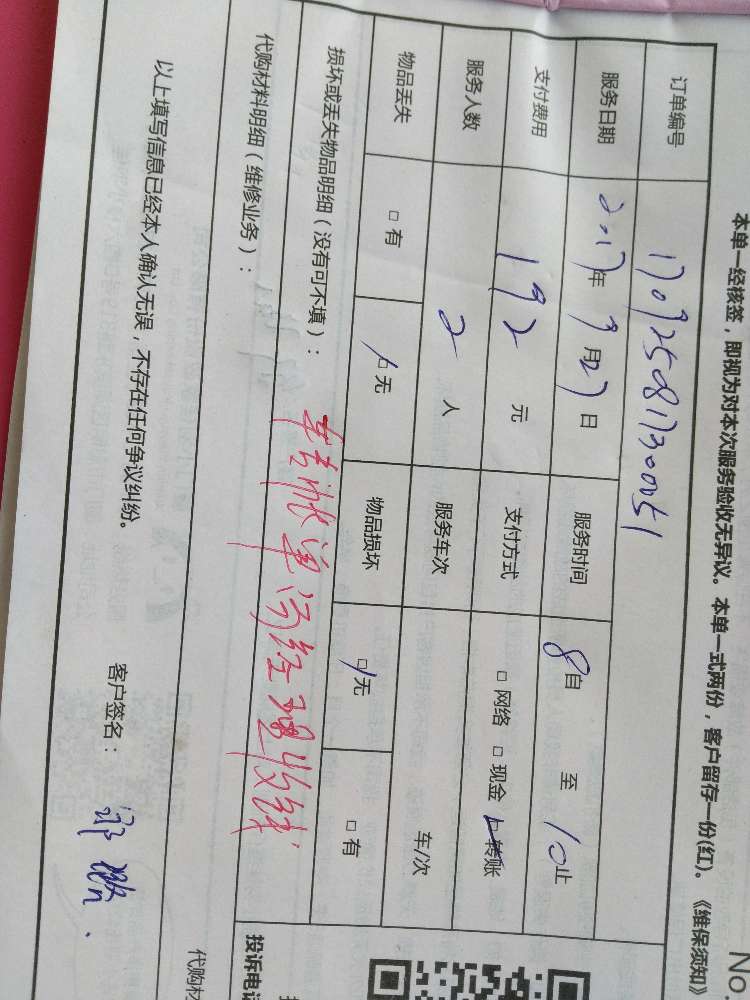 No.
本单一经核签，即视为对本次服务验收无异议。本单一式两份，客户留存一份(红)。《维保须知》
订单编号 170925081730051
服务日期 2017年9月27日 服务时间 8自 至 10止
支付费用 192元 支付方式 □网络 □现金 □转账
服务人数 2人 服务车次 车/次
物品丢失 □有 □无 物品损坏 □无 □有
损坏或丢失物品明细（没有可不填）：
转账单 经理收钱
代购材料明细（维修业务）：
代购材
投诉电话
以上填写信息已经本人确认无误，不存在任何争议纠纷。 客户签名：